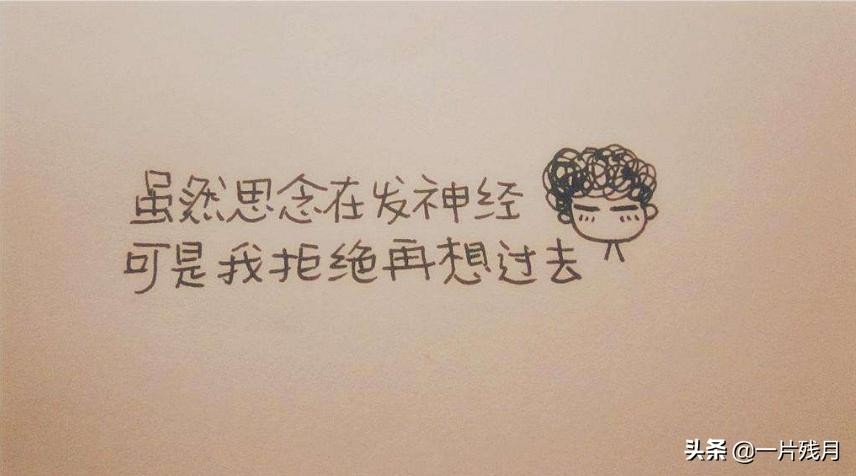 虽然思念在发神经
可是我拒绝再想过去
头条 @一片残月